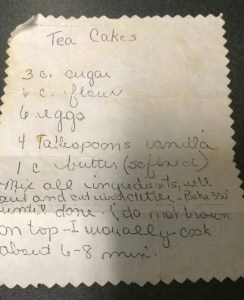 Tea Cakes
3 c. sugar
6 c. flour
6 eggs
4 Tablespoons vanilla
1 c butter (softened)
Mix all ingredients, roll
out and cut - Bake 350°
until done. (do not brown
on top - I usually cook
about 6-8 min.